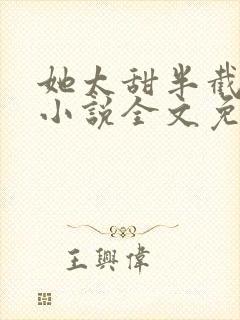 她太甜半截
小說全文免
王興偉